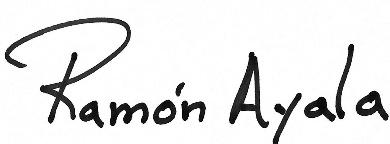 Ramón Ayala